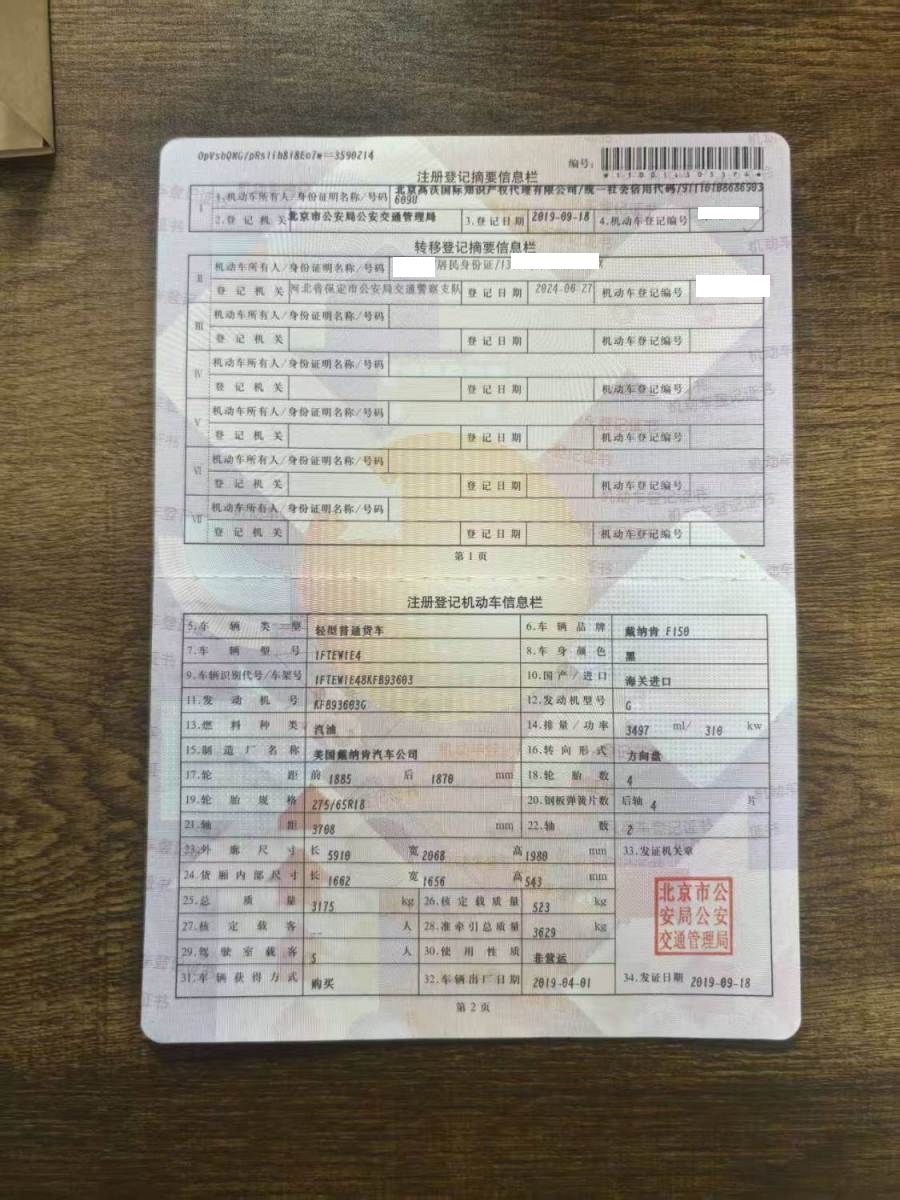 OpVsbQMG/pRslihBi8Eo7w==3590214
编号:
注册登记摘要信息栏
I 1.机动车所有人/身份证明名称/号码 北京高沃国际知识产权代理有限公司/统一社会信用代码/91110108686903
609U
2.登记机关 北京市公安局公安交通管理局 3.登记日期 2019-09-18 4.机动车登记编号
转移登记摘要信息栏
II 机动车所有人/身份证明名称/号码 居民身份证/13
登记机关 河北省保定市公安局交通警察支队 登记日期 2024-06-27 机动车登记编号
III 机动车所有人/身份证明名称/号码
登记机关 登记日期 机动车登记编号
IV 机动车所有人/身份证明名称/号码
登记机关 登记日期 机动车登记编号
V 机动车所有人/身份证明名称/号码
登记机关 登记日期 机动车登记编号
VI 机动车所有人/身份证明名称/号码
登记机关 登记日期 机动车登记编号
VII 机动车所有人/身份证明名称/号码
登记机关 登记日期 机动车登记编号
第1页
注册登记机动车信息栏
5.车辆类型 轻型普通货车 6.车辆品牌 戴纳肯 F150
7.车辆型号 1FTEW1E4 8.车身颜色 黑
9.车辆识别代号/车架号 1FTEW1E48KFB93603 10.国产/进口 海关进口
11.发动机号 KFB93603G 12.发动机型号 G
13.燃料种类 汽油 14.排量/功率 3497 ml/ 310 kw
15.制造厂名称 美国戴纳肯汽车公司 16.转向形式 方向盘
17.轮距 前 1885 后 1870 mm 18.轮胎数 4
19.轮胎规格 275/65R18 20.钢板弹簧片数 后轴 4 片
21.轴距 3708 mm 22.轴数 2
23.外廓尺寸 长 5910 宽 2068 高 1980 mm 33.发证机关章
24.货厢内部尺寸 长 1662 宽 1656 高 543 mm
25.总质量 3175 kg 26.核定载质量 523 kg
27.核定载客 -- 人 28.准牵引总质量 3629 kg
29.驾驶室载客 5 人 30.使用性质 非营运
北京市公
安局公安
交通管理局
31.车辆获得方式 购买 32.车辆出厂日期 2019-04-01 34.发证日期 2019-09-18
第2页